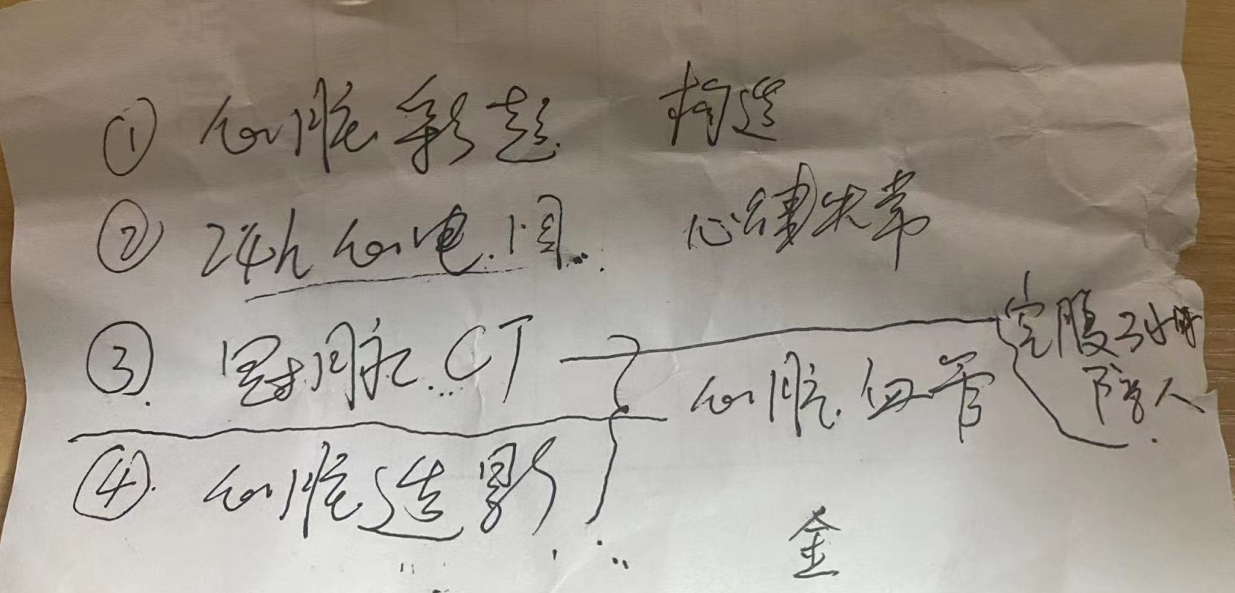 ① 心脏彩超 构造
② 24h心电图 心律失常
③ 冠脉CT 空腹3小时
心脏血管
④ 心脏造影
金